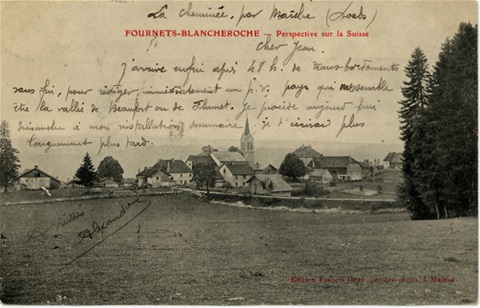 La cheminée, par Maîche (Doubs)
FOURNETS-BLANCHEROCHE – Perspective sur la Suisse
Cher Jean.
J'arrive enfin après 48 h. de transbordements
sans fin, pour rédiger immédiatement un p.v. pays qui ressemble
être la vallée de Beaufort ou de Flumet. Je procède aujourd'hui
dimanche à mon installation sommaire. je t'écrirai plus
longuement plus tard.
Alexandre
Edition Francis Gray, peintre-photo, à Maîche